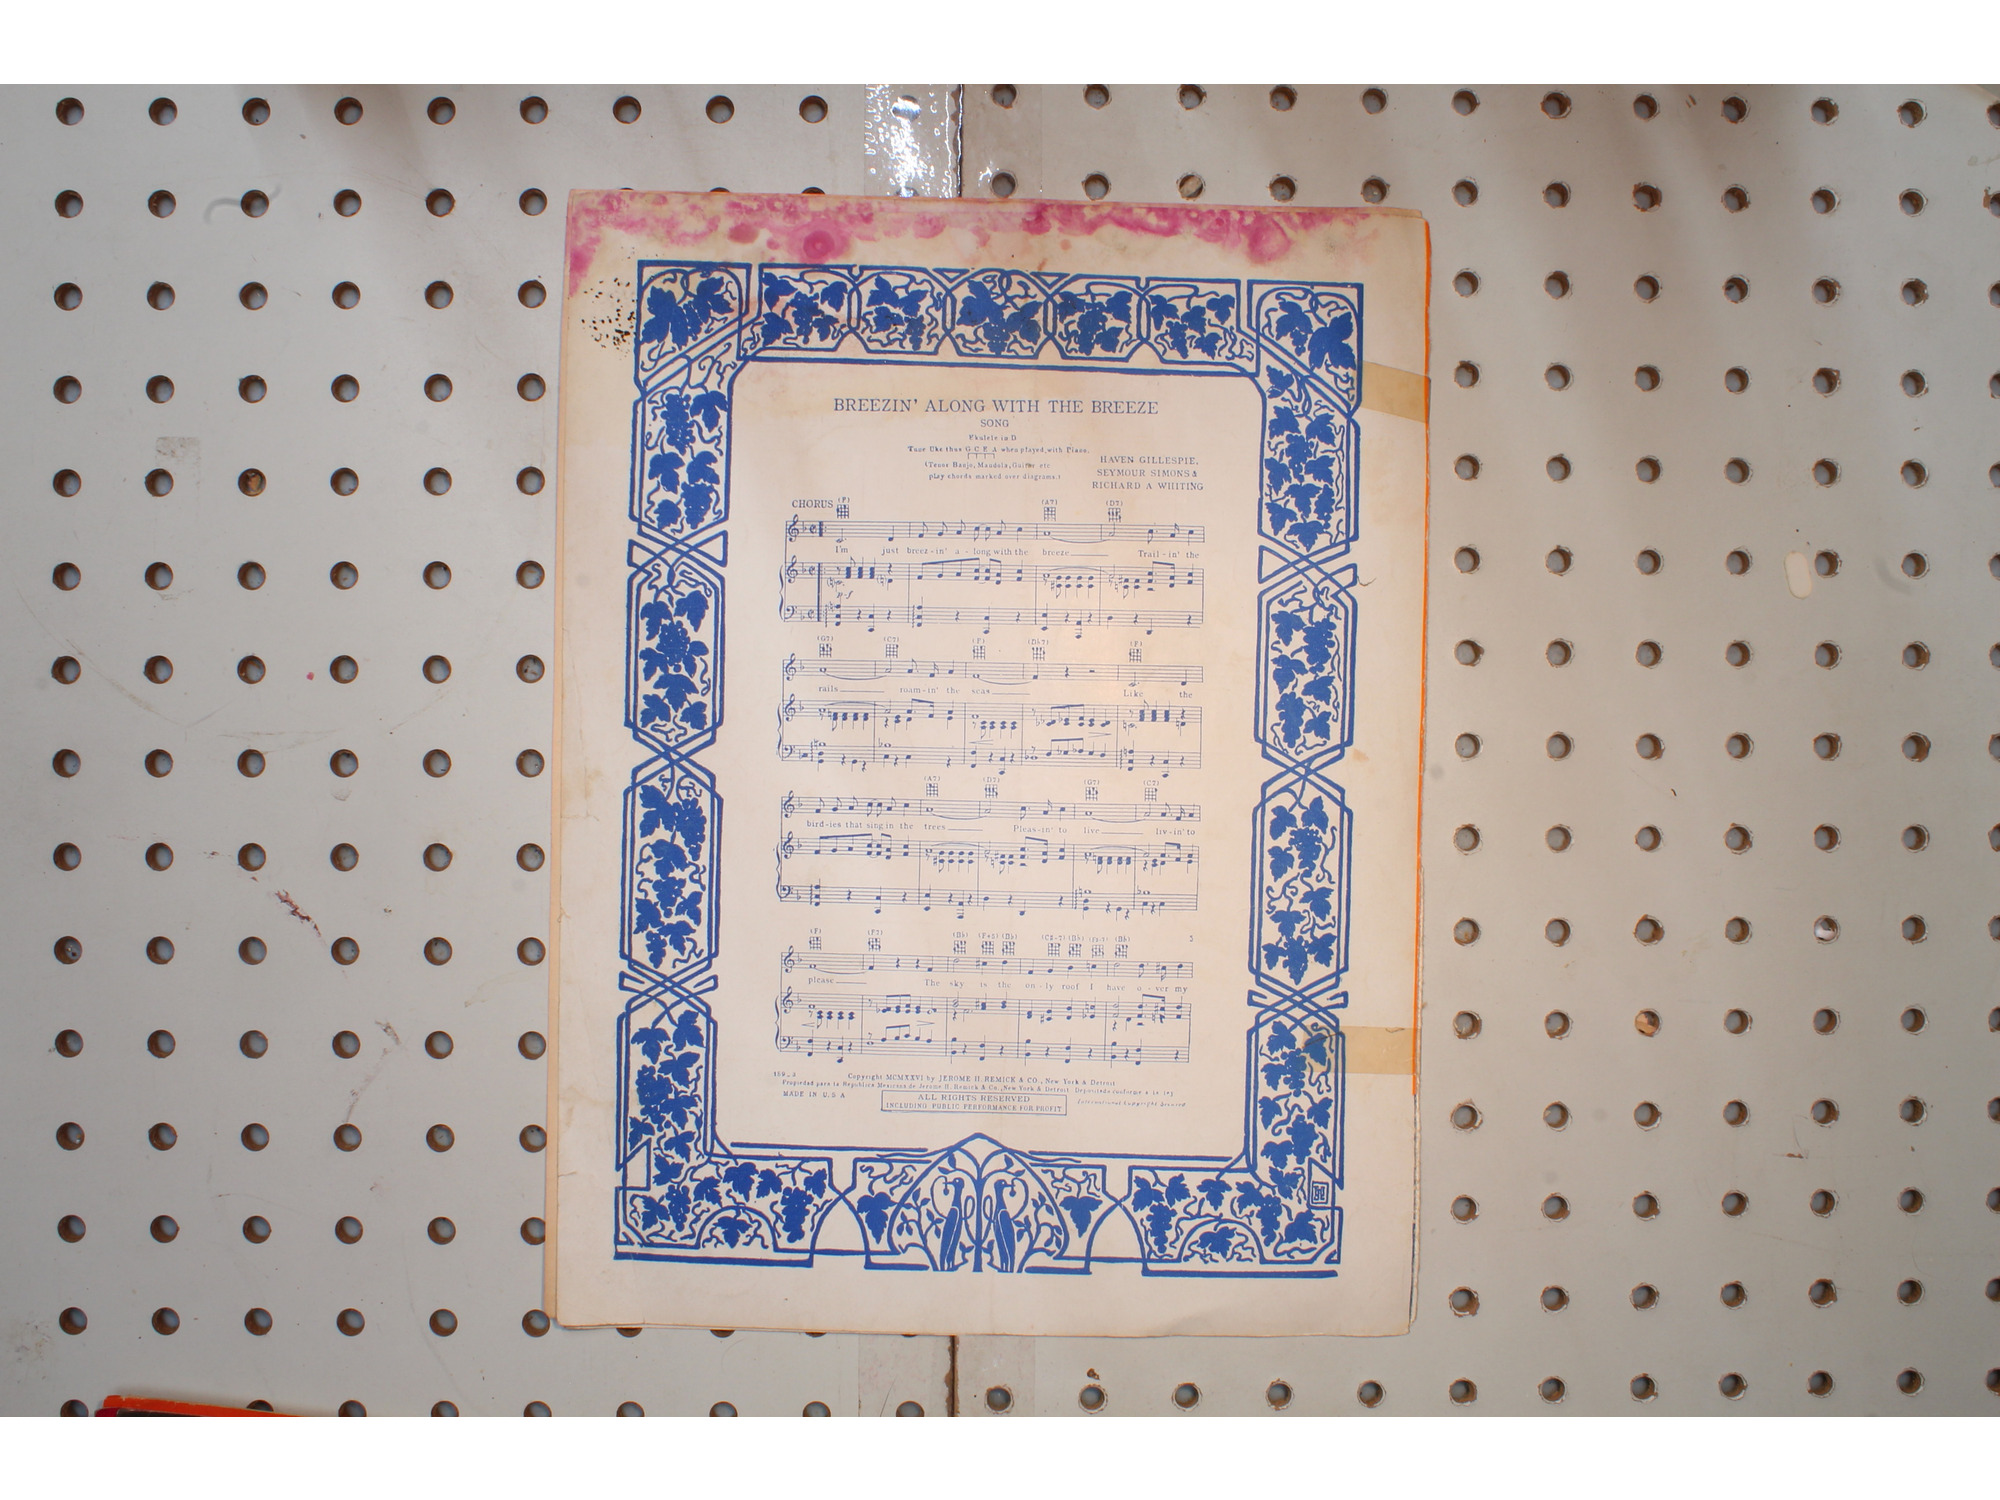 BREEZIN' ALONG WITH THE BREEZE
SONG
Ukulele in D
Tune Uke thus G C E A when played with Piano.
(Tenor Banjo, Mandola, Guitar etc
play chords marked over diagrams.)
HAVEN GILLESPIE,
SEYMOUR SIMONS &
RICHARD A WHITING
CHORUS (F) (A7) (D7)
I'm just breez-in' a-long with the breeze Trail-in' the
(G7) (C7) (F) (Db7) (F)
rails roam-in' the seas Like the
(A7) (D7) (G7) (C7)
bird-ies that sing in the trees Pleas-in' to live liv-in' to
(F) (F7) (Bb) (F+5) (Bb) (Bb) (Bb)
please The sky is the on-ly roof I have o-ver my
Copyright MCMXXVI by JEROME H. REMICK & CO., New York & Detroit
Propiedad para la Republica Mexicana de Jerome H. Remick & Co., New York & Detroit Depositada conforme a la ley
MADE IN U.S.A
ALL RIGHTS RESERVED
INCLUDING PUBLIC PERFORMANCE FOR PROFIT
International Copyright Secured